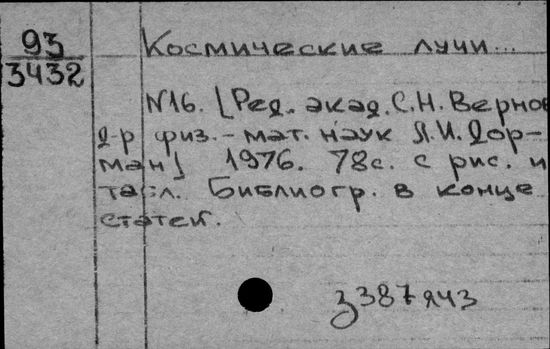 93
3432
Космические лучи...
N16. [Ред. акад. С.Н. Верно
д-р физ.-мат. наук Л.И. Дор-
ман] 1976. 78с. с рис. и
табл. Библиогр. в конце
статей.